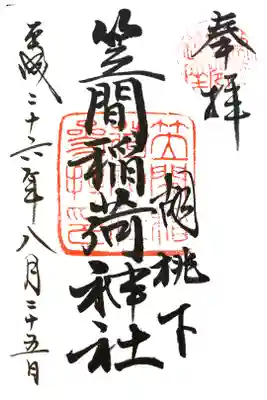 奉拝
胡桃下
笠間稲荷神社
平成二十六年八月二十五日